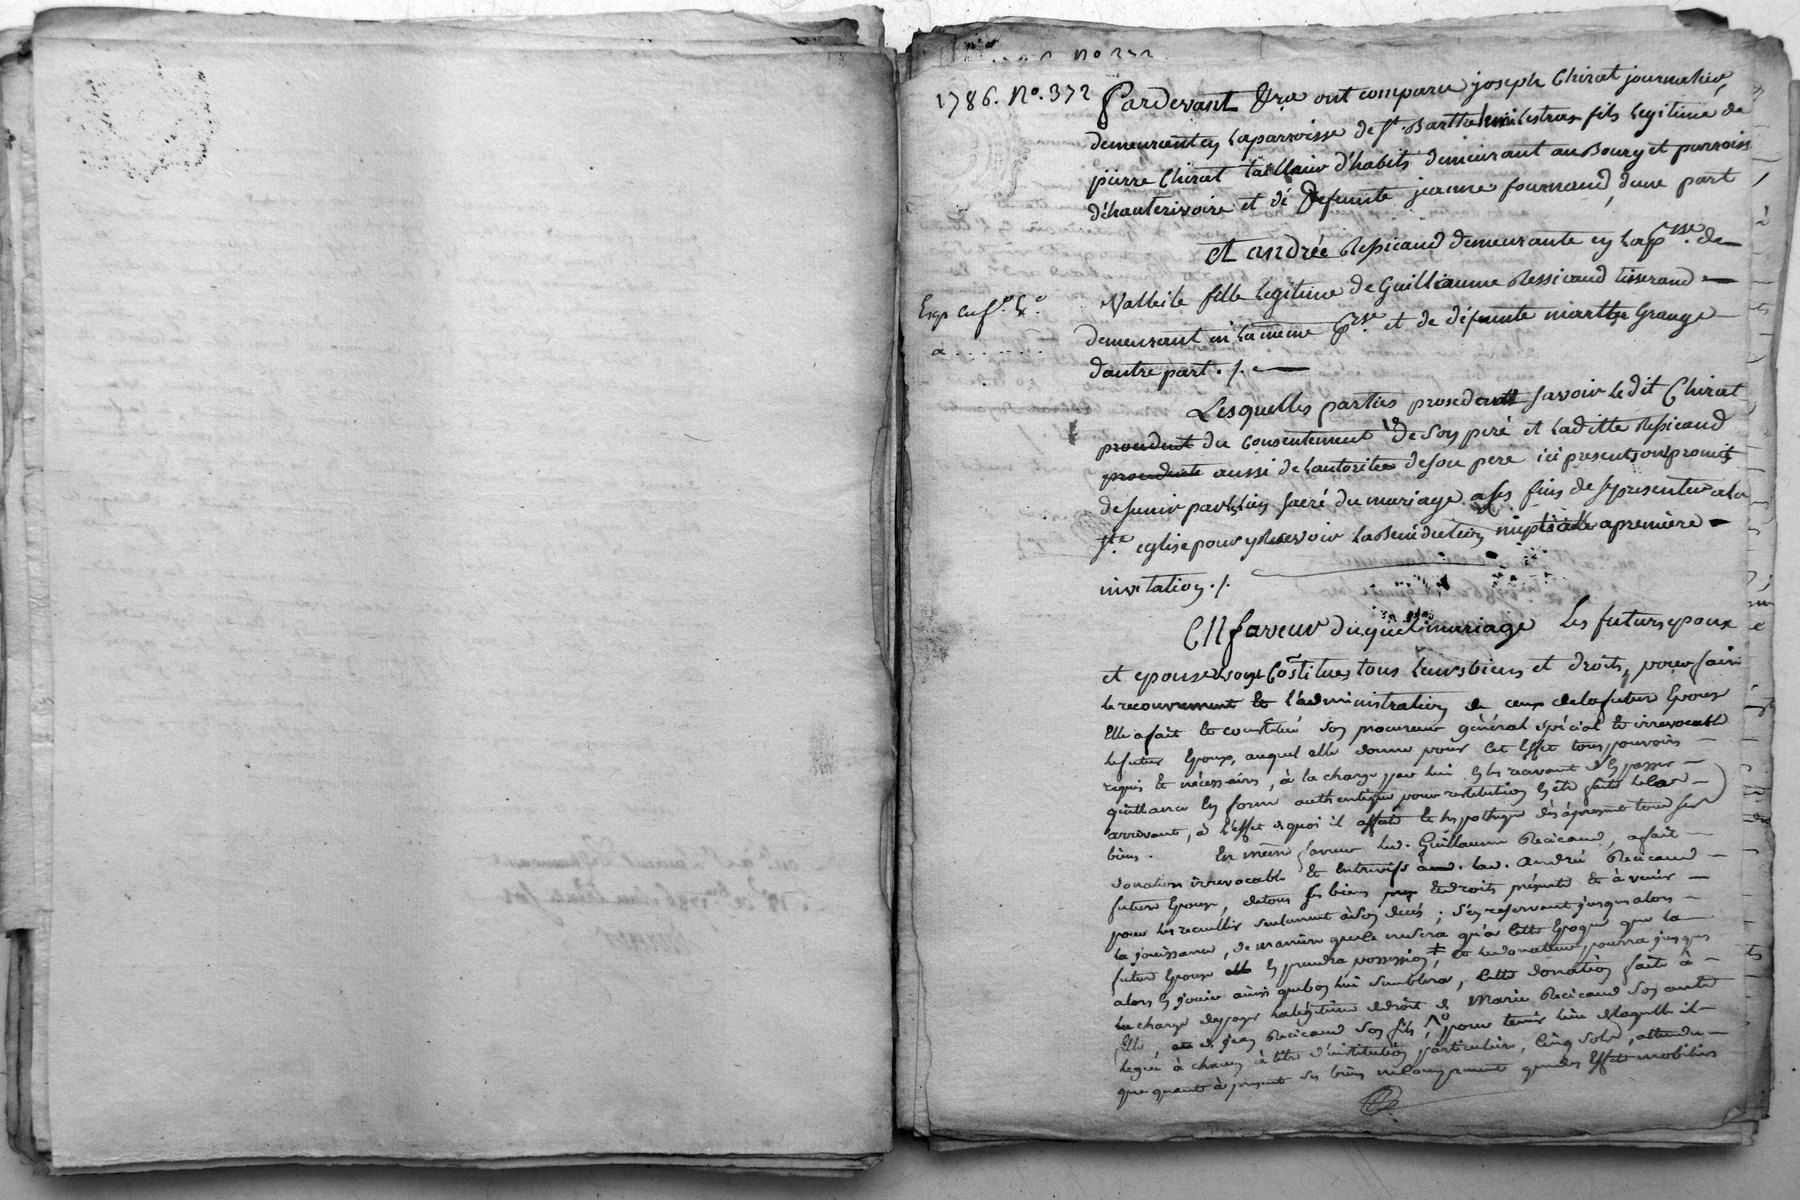 1786. No. 372
Pardevant Nre ont comparu joseph Chirat journalier,
demeurant en la parroisse de St. Barthelemi lestras fils legitime de
pierre Chirat tailleur d'habits demeurant au Bourg et parroisse
d'hauterivoire et dé Defunte jeanne fournand, dune part
et andrée Ressicaud demeurante en la psse. de
Valleile fille legitime de Guilliaume Ressicaud tisserand
demeurant en la meme psse et de défunte marthe Grange
dautre part ./.
Exp. en f.
Lesquelles parties prosedant savoir le dit Chirat
procedant du Consentement de son peré et laditte Ressicaud
procedante aussi de lautoritee de son pere ici presents ont promis
de sunir par le lien sacré du mariage a ses fins de se presenter a la
Ste. eglise pour y recevoir la Benediction nuptialle a premiere
invitation ./.
En faveur duquel mariage Les futurs epoux
et epouse se sont Constitues tous leurs biens et droits, pour faire
le recouvrement et l'administration de ceux de la futur Epouse
Elle a fait et constitué son procureur général spécial et irrevocable
le futur Epoux, auquel elle donne pour cet Effet tous pouvoirs
requis et nécessaires, à la charge par lui en les recevant d'en passer
quittance en forme authentique pour restitution en etre faite le cas
arrivant, à l'effet de quoi il affecte et hypotheque dès àprésent tous ses
biens. En meme faveur led. Guillaume Recicaud, a fait
donation irrevocable et entrevifs à lad. Andrée Recicaud
future Epouse, de tous ses biens et droits présents et à venir
pour les recueillir seulement à son decès ; s'en reservant jusqu'alors
la jouissance, de maniere que ce ne sera qu'à cette Epoque que la
future Epouse en prendra possession, et le donateur pourra jusques
alors en jouir ainsi que bon lui semblera, cette donation faite à
la charge de payer la légitime de droit de Marie Recicaud son autre
fille, et de jean Recicaud son fils, pour tenir lieu de laquelle il
legue à chacun à titre d'institution particuliere, Cinq sols, attendu
que quant à present ses biens ne comprennent que des Effets mobiliers